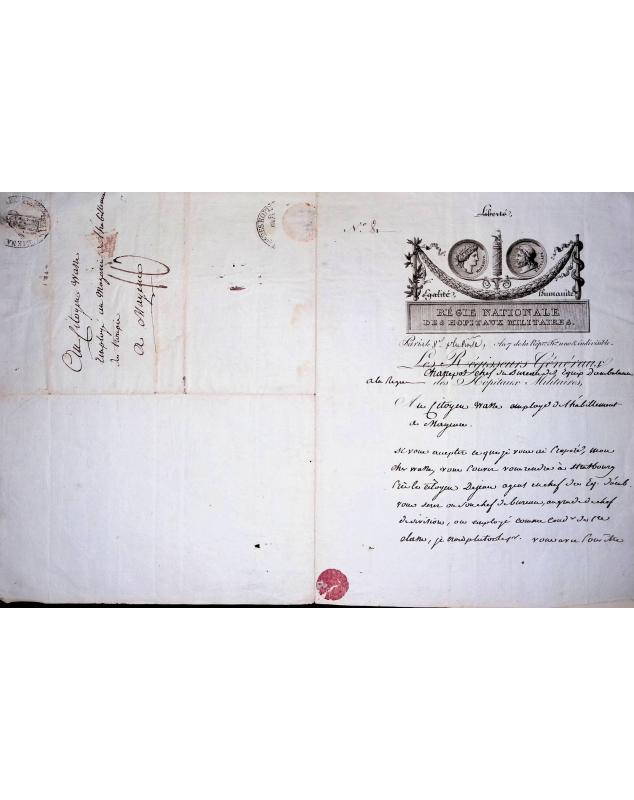 Au Citoyen Watte
Employé au Magasin d'habillement
de troupe
à Mayence
Liberté,
N.° 8.
Égalité, Humanité,
RÉGIE NATIONALE
DES HOPITAUX MILITAIRES.
Paris le pluviôse, An 7 de la Répu. Fr.se une & indivisible.
Les Régisseurs Généraux
chef du Bureau des Equip. d'ambulance
à la Régie des Hôpitaux Militaires,
Au Citoyen Watte employé de l'habillement
à Mayence.
Si vous accepter ce que je vous ai proposé, mon
cher Watte, vous pouvez vous rendre à Strasbourg
près le Citoyen agent en chef des Eq. d'amb.
vous serez ou son chef de bureau, au grade de chef
de division, ou employé comme Cond.r de 1re
classe, je vous avez pour être